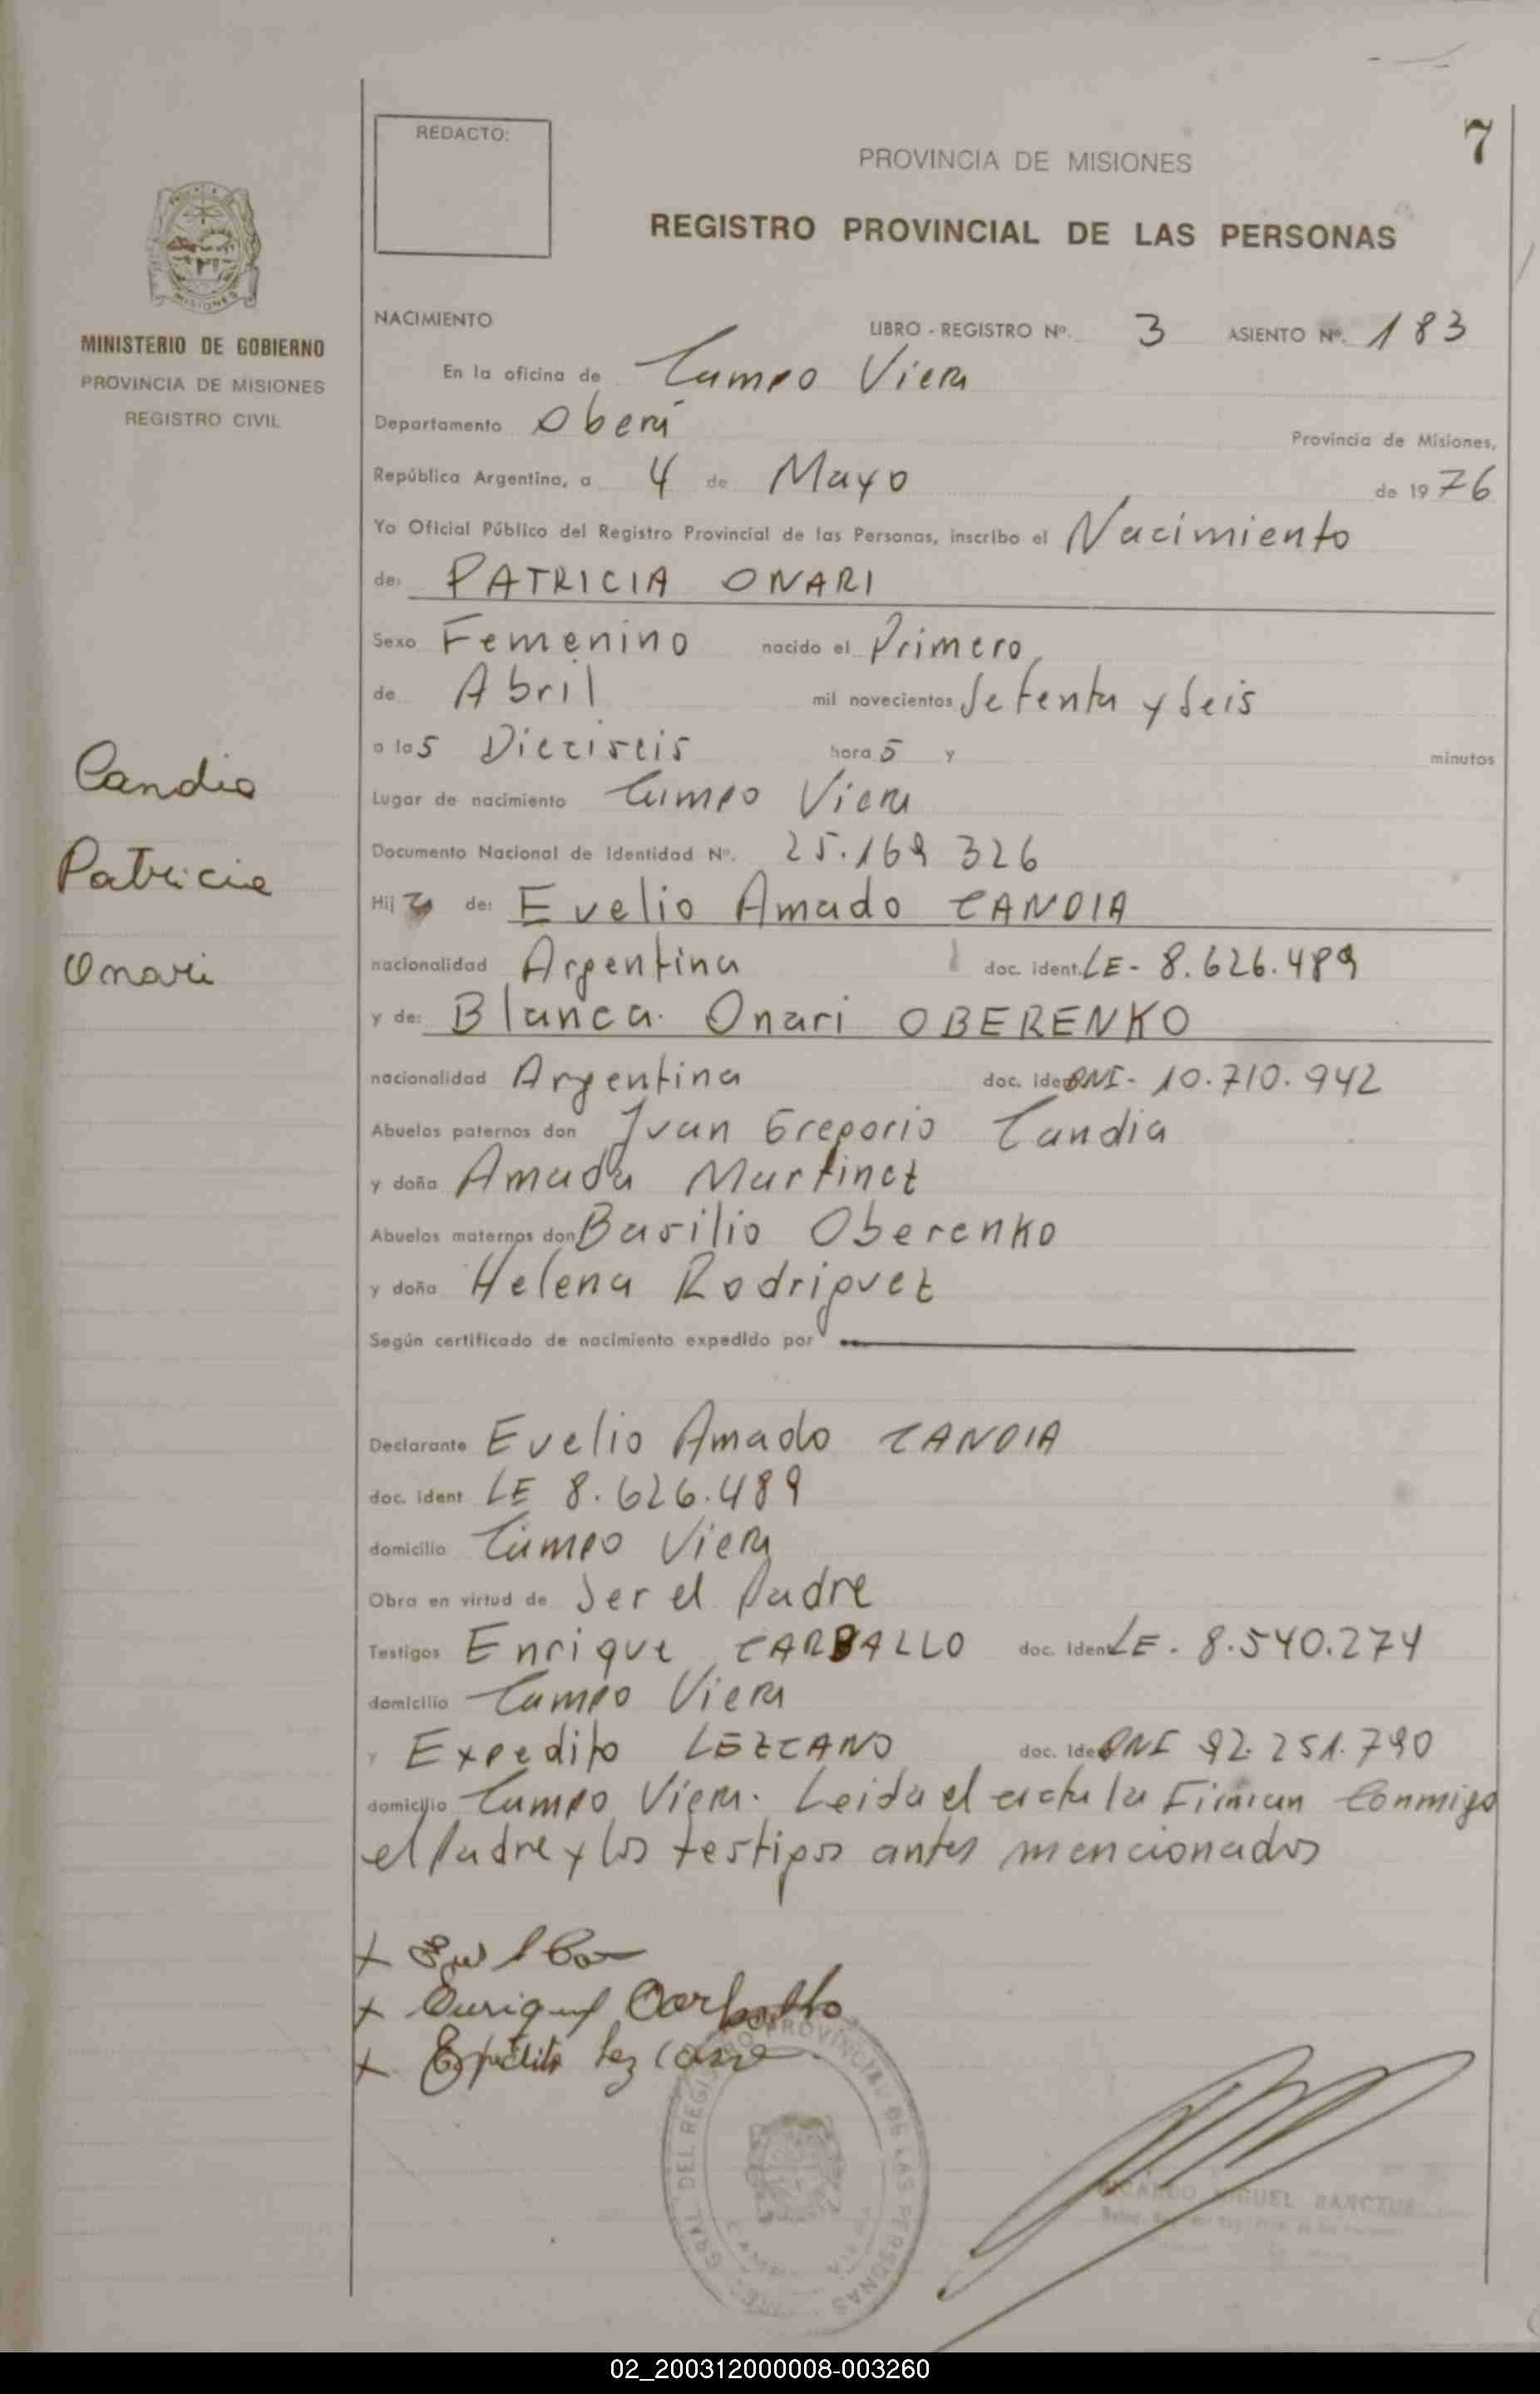 7
REDACTO:
PROVINCIA DE MISIONES
REGISTRO PROVINCIAL DE LAS PERSONAS
MISIONES
MINISTERIO DE GOBIERNO
PROVINCIA DE MISIONES
REGISTRO CIVIL
NACIMIENTO LIBRO - REGISTRO Nº. 3 ASIENTO Nº. 183
En la oficina de Campo Viera
Departamento Oberá Provincia de Misiones,
República Argentina, a 4 de Mayo de 1976
Yo Oficial Público del Registro Provincial de las Personas, inscribo el Nacimiento
de: PATRICIA ONARI
Sexo Femenino nacido el Primero
de Abril mil novecientos Setenta y Seis
a las Dieciseis horas y minutos
Lugar de nacimiento Campo Viera
Documento Nacional de Identidad Nº. 25.169 326
Hija de: Evelio Amado CANDIA
nacionalidad Argentina doc. ident. LE - 8.626.489
y de: Blanca Onari OBERENKO
nacionalidad Argentina doc. ident DNI - 10.710.942
Abuelos paternos don Juan Gregorio Candia
y doña Amada Martinez
Abuelos maternos don Basilio Oberenko
y doña Helena Rodriguez
Según certificado de nacimiento expedido por
Declarante Evelio Amado CANDIA
doc. ident LE 8.626.489
domicilio Campo Viera
Obra en virtud de Ser el Padre
Testigos Enrique CARBALLO doc. Ident LE - 8.540.274
domicilio Campo Viera
y Expedito LEZCANO doc. Ident DNI 92.251.790
domicilio Campo Viera. Leida el acta la Firman Conmigo
el Padre y los testigos antes mencionados
Candia
Patricia
Onari
x
x Enrique Carballo
x Expedito Lezcano
GRAL. DEL REGISTRO PROVINCIAL DE LAS PERSONAS
RICARDO MIGUEL
02_200312000008-003260